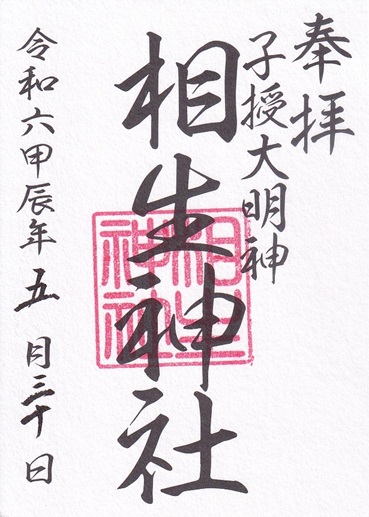 奉拝
子授大明神
相生神社
相生
神社
令和六甲辰年五月三十日